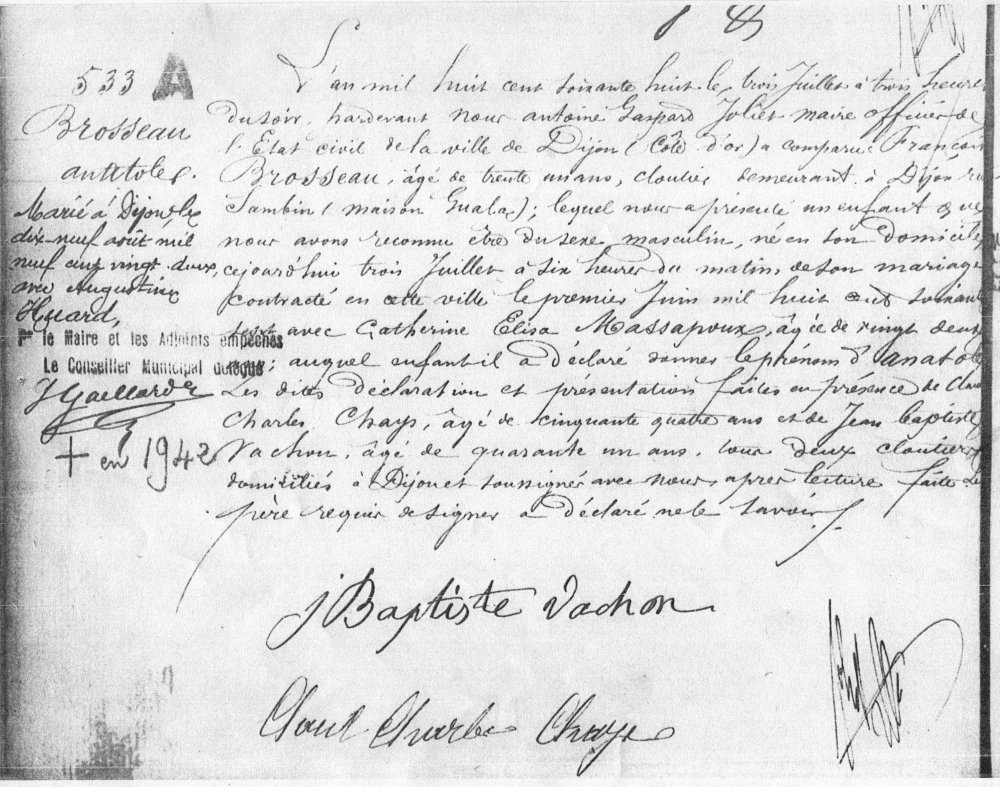 533 A
Brosseau
anatole.
Marié à Dijon le
dix-neuf août mil
neuf cent vingt deux,
avec Augustine
Huard,
Pr le Maire et les Adjoints empêchés
Le Conseiller Municipal délégué
Gaillard
+ en 1942
L'an mil huit cent soixante huit le trois Juillet à trois heures
du soir, pardevant nous antoine Gaspard Joliet maire officier de
l'État civil de la ville de Dijon (Côte d'or) a comparu: François
Brosseau, âgé de trente un ans, cloutier demeurant à Dijon rue
Sambin (maison); lequel nous a présenté un enfant que
nous avons reconnu être du sexe masculin, né en son domicile
cejourd'hui trois Juillet à six heures du matin, de son mariage
contracté en cette ville le premier Juin mil huit cent soixante
sept avec Catherine Élisa Massapoux, âgée de vingt deux
ans; auquel enfant il a déclaré donner le prénom d'anatole
Les dites déclaration et présentation faites en présence de Claude
Charles Chays, âgé de cinquante quatre ans et de Jean baptiste
Vachon, âgé de quarante un ans, tous deux cloutiers
domiciliés à Dijon et soussignés avec nous apres lecture faite Le
père requis de signer a déclaré ne le savoir /.
J Baptiste Vachon
Claud Charles Chays